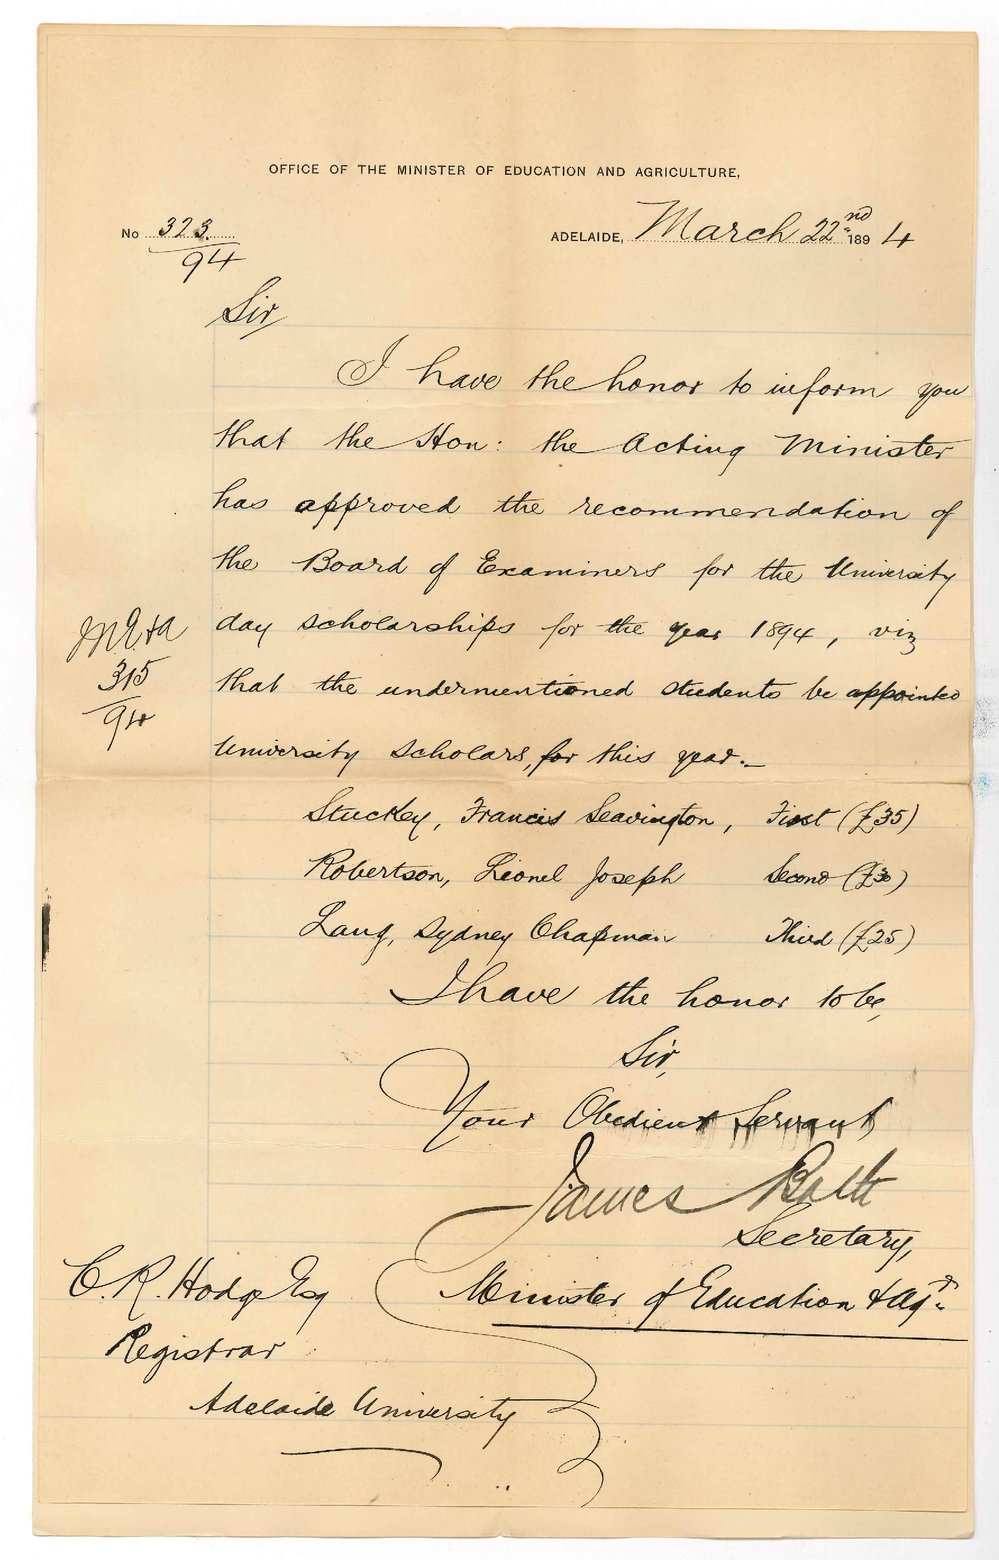 OFFICE OF THE MINISTER OF EDUCATION AND AGRICULTURE,
No 323.
94
ADELAIDE, March 22nd 1894
Sir
I have the honor to inform you
that the Hon: the Acting Minister
has approved the recommendation of
the Board of Examiners for the University
day scholarships for the year 1894, viz
that the undermentioned students be appointed
University Scholars, for this year.—
M.E.&A
315
94
Stuckey, Francis Seavington, First (£35)
Robertson, Lionel Joseph Second (£30)
Lang, Sydney Chapman Third (£25)
I have the honor to be,
Sir,
Your Obedient Servant
James Bath
Secretary,
Minister of Education & Agr.
C. R. Hodge Esq
Registrar
Adelaide University